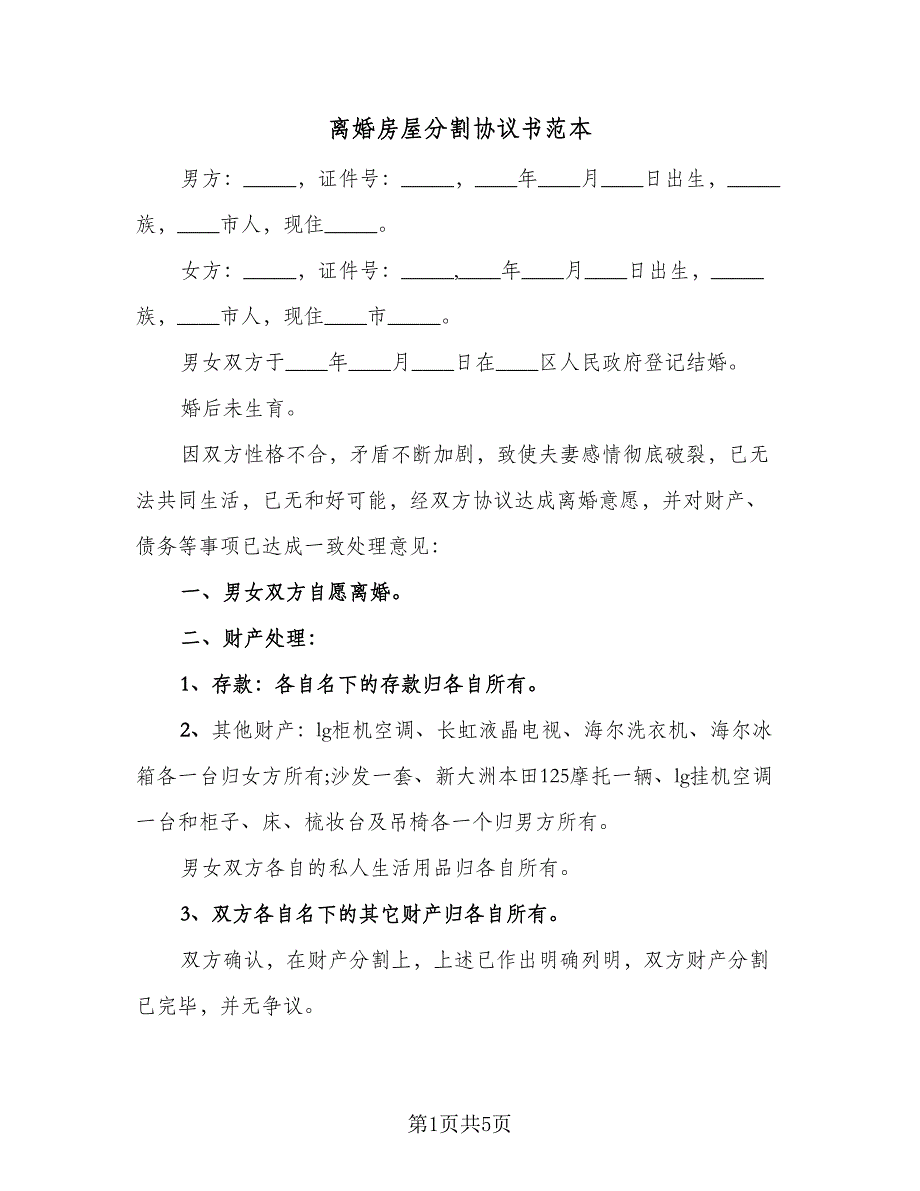 离婚房屋分割协议书范本
男方：_____，证件号：_____，____年____月____日出生，_____
族，____市人，现住_____。
女方：_____，证件号：_____,____年____月____日出生，_____
族，____市人，现住____市_____。
男女双方于____年____月____日在____区人民政府登记结婚。
婚后未生育。
因双方性格不合，矛盾不断加剧，致使夫妻感情彻底破裂，已无
法共同生活，已无和好可能，经双方协议达成离婚意愿，并对财产、
债务等事项已达成一致处理意见：
一、男女双方自愿离婚。
二、财产处理：
1、存款：各自名下的存款归各自所有。
2、其他财产：lg柜机空调、长虹液晶电视、海尔洗衣机、海尔冰
箱各一台归女方所有;沙发一套、新大洲本田125摩托一辆、lg挂机空调
一台和柜子、床、梳妆台及吊椅各一个归男方所有。
男女双方各自的私人生活用品归各自所有。
3、双方各自名下的其它财产归各自所有。
双方确认，在财产分割上，上述已作出明确列明，双方财产分割
已完毕，并无争议。
第1页共5页